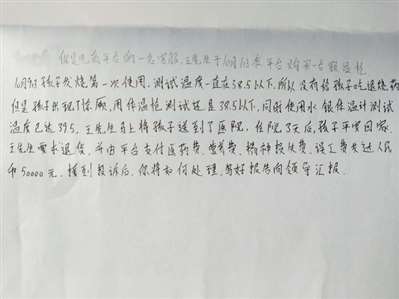 你是电商平台的一名客服,王先生于10月1日在平台购买一台额温枪
10月7日孩子发烧第一次使用,测试温度一直在38.5以下,所以没有给孩子吃退烧药
但是孩子出现了惊厥,用体温枪测试还是38.5以下,同时使用水银体温计测试
温度已达39.5.王先生马上将孩子送到了医院,住院了3天后,孩子平安回家.
王先生要求退货,并由平台支付医药费、营养费、精神损失费、误工费共达人民
币50000元.接到投诉后,你将如何处理,写好报告向领导汇报.